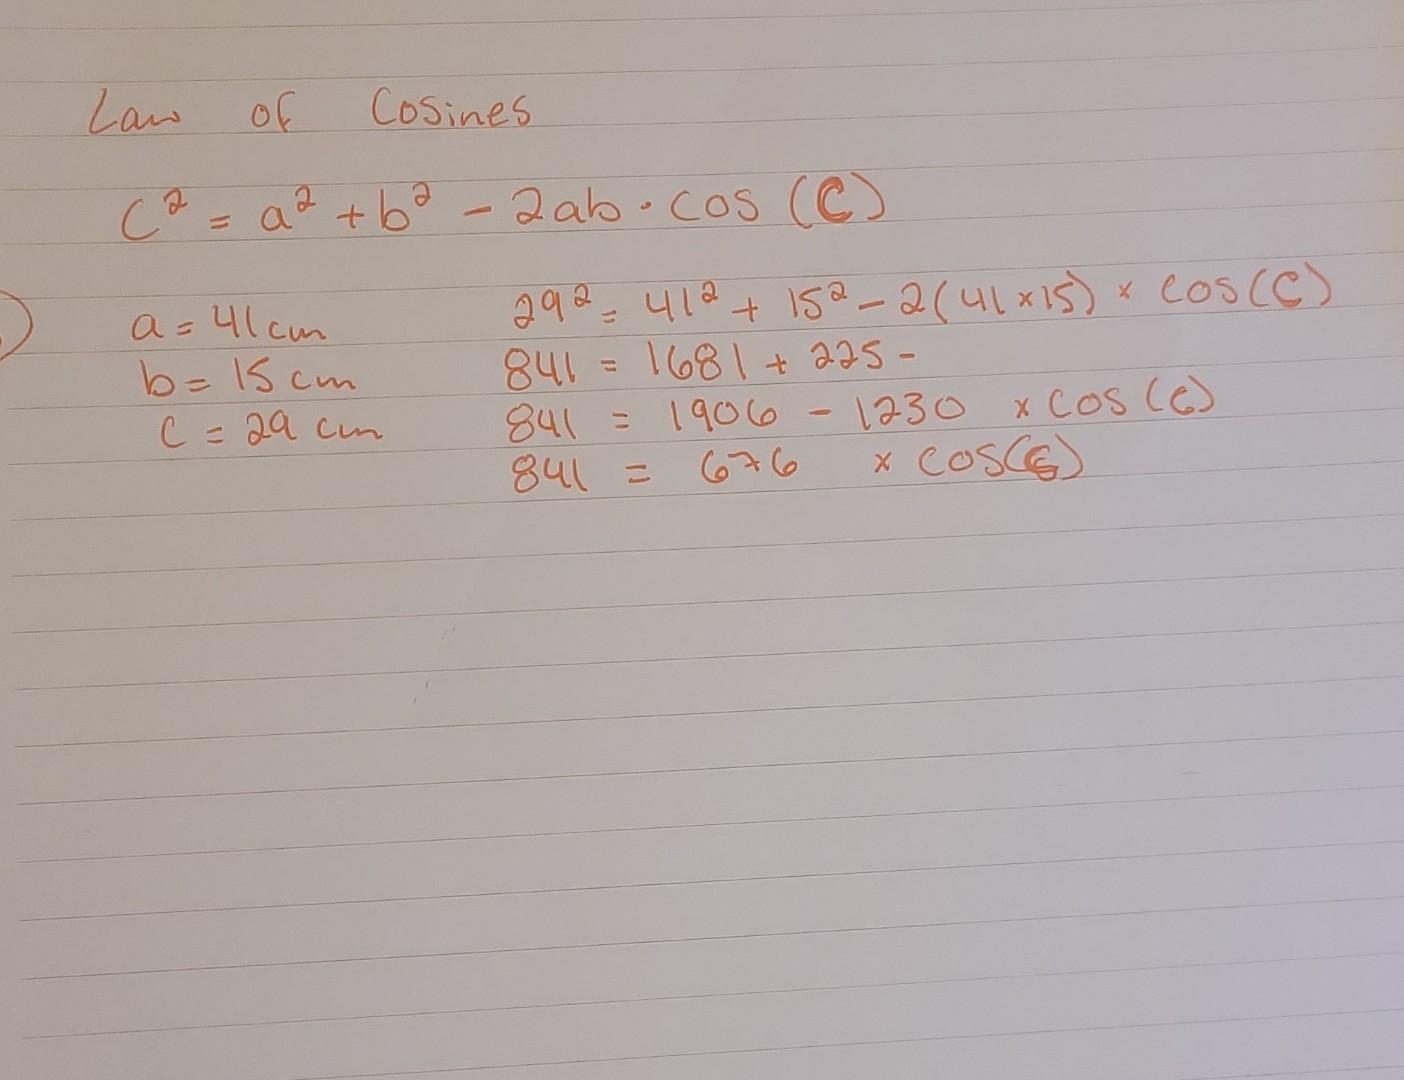 Law of Cosines
c² = a² + b² - 2ab · cos (C)
)
a = 41cm
b = 15 cm
c = 29 cm
29² = 41² + 15² - 2(41×15) × cos(C)
841 = 1681 + 225 -
841 = 1906 - 1230 × cos(C)
841 = 676 × cos(C)